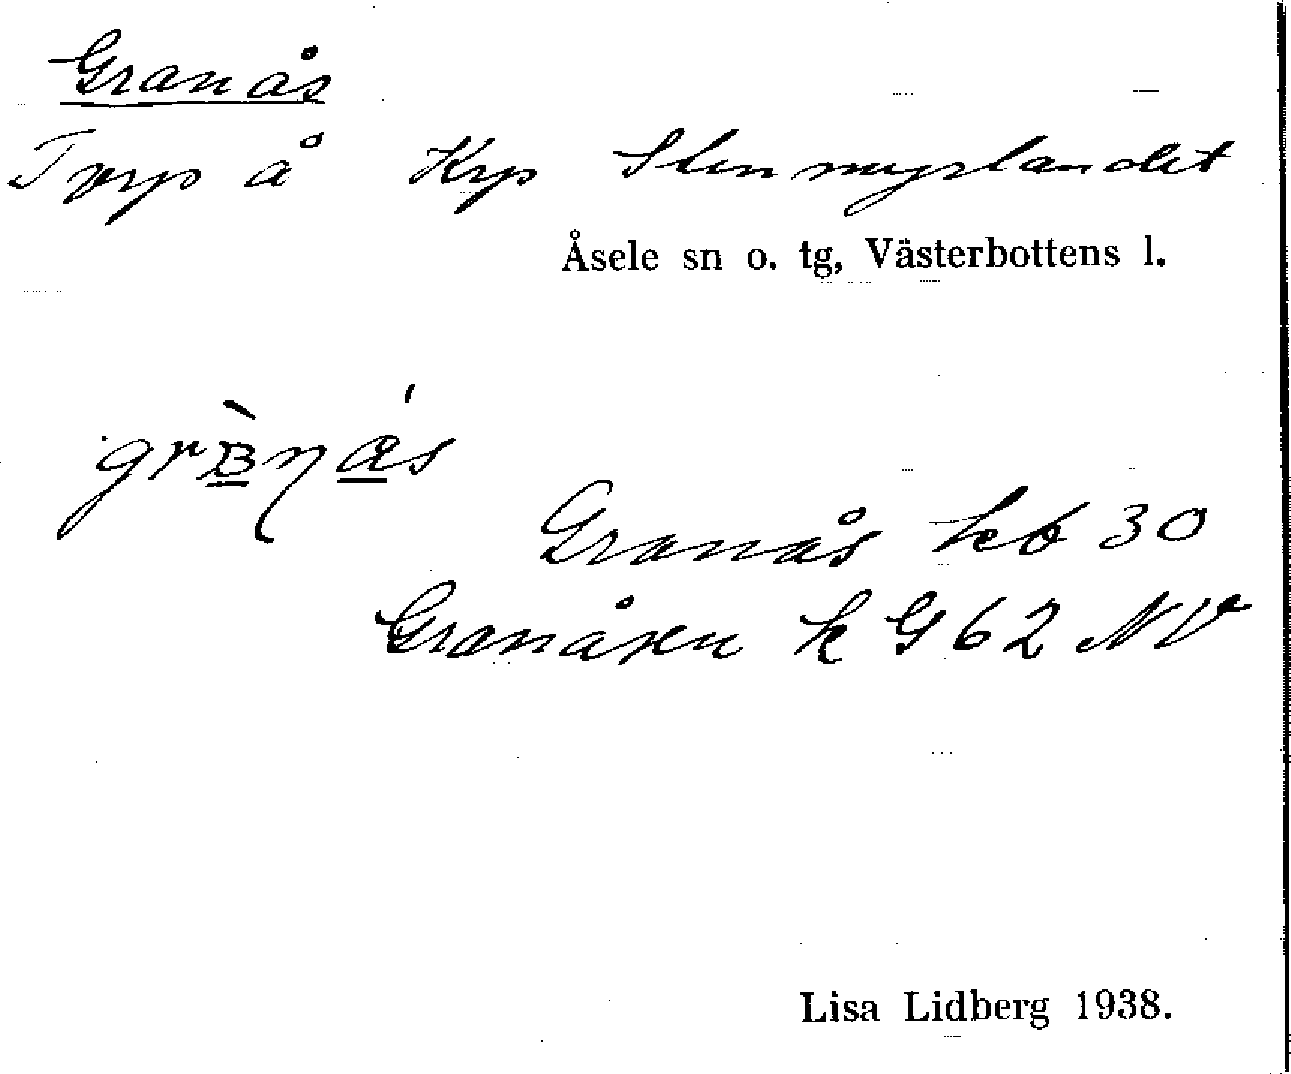 Granås
Torp å Krp Stenmyrlandet
Åsele sn o. tg, Västerbottens l.
Granås kb 30
Granåsen k G 62 NV
Lisa Lidberg 1938.